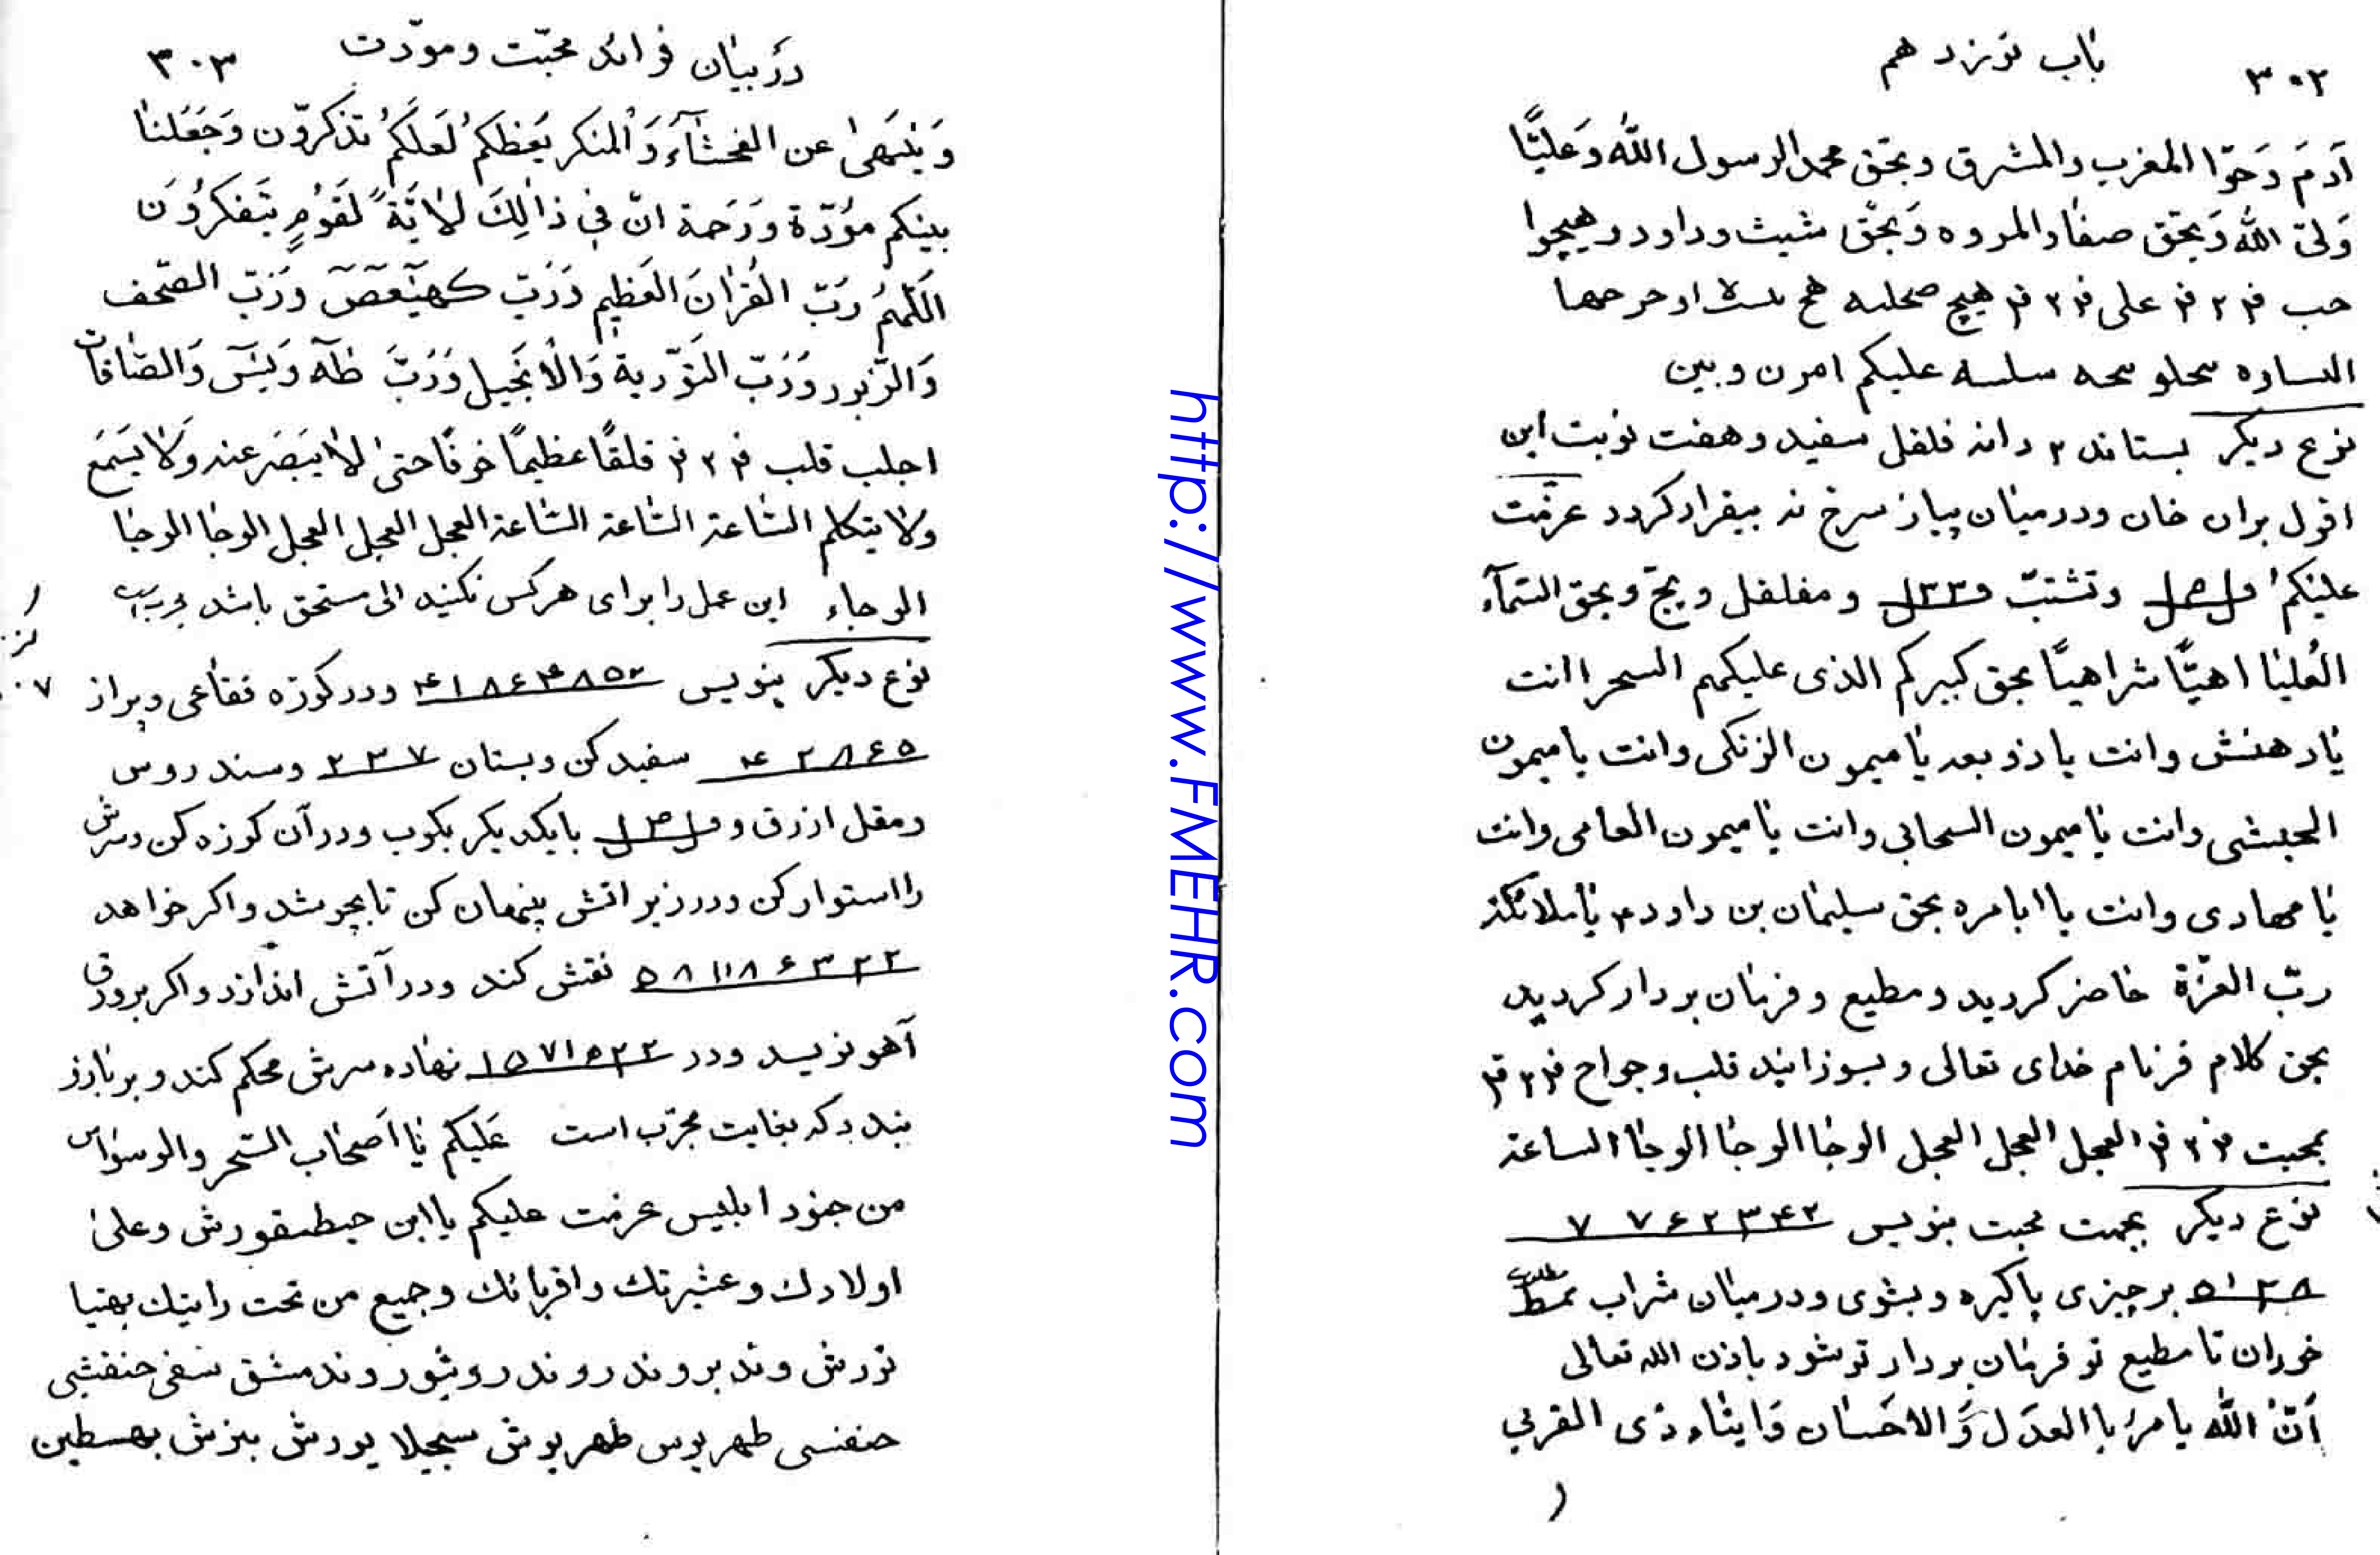 ۳۰۲ باب نوزدهم
آدَمَ وَحَوّا المغرب والمشرق وبحق محمدالرسول اللّه وَعَليًّا
وَلىّ اللّه وَبحَق صفا والمروه وَبحَق شیث وداود
حب ف ۲ ف علی ف ۲ ف هیچ
علیکم امرن وبین
نوع دیکر بستاند ۲ دانه فلفل سفید وهفت نوبت این
افول بران خان ودرمیان پیاز سرخ نه بیقرار کردد عزمت
علیکمُ وبحق السّمآء
العُلینا اهیًّا شراهیًّا بحق کبیرکم الذی علیکهم السحرا انت
یاد هنش وانت یا ذوبعه یا میمون الزنکی وانت یا میمون
الحبشی وانت یا میمون السحابی وانت یا میمون العامی وانت
یا مهادی وانت یا ابامره بحق سلیمان بن داود ۴ یا ملائکة
ربّ العزّة حاضر کردید ومطیع وفرمان بردار کردید
بحق کلام فرنام خدای تعالی وبسوزانید قلب وجواح ف ۲ ف
بمحبت ف ۲ ف العجل العجل العجل الوحا الوحا الوحا الساعة
نوع دیکر بجهت محبت بنویس ۷ ۷ ۶ ۲ ۳ ۴ ۲
۵ ۱ ۲ ۸ بر چیزی پاکیره وبشوی ودرمیان شراب مطلوب
خوران تا مطیع تو فرمان بردار تو شود باذن الله تعالی
اَنّ اللّه یامرُ باالعدَل وَالاحسان وَایتاء ذی القربی
دربیان فوائد محبّت ومودّت ۳۰۳
وَیَنهیٰ عن الفحشآءَ وَالمنکر یَعظکمُ لَعلکمُ تذکرّون وَجَعَلنا
بینکم مؤدّة وَرَحمة انّ فی ذالِكَ لاٰیَةً لقَومٍ یتَفکرُوَن
اللّهمُ رَبّ القرانَ العَظیم وَرَبّ کهیٓعٓصٓ وَرَبّ الصّحف
وَالزّبور وَرَبّ التوّریة وَالاْنجیل وَرَبَّ طٰهٓ وَیٰسٓ وَالصّافات
اجلب قلب ف ۲ ف قلقًا عظیمًا خوفًا حتیٰ لاٰ یَبصَر عنه وَلا یَسمَع
ولا یتکلم السّاعة السّاعة السّاعة العجل العجل العجل الوحا الوحا
الوحاء این عمل را برای هرکس نکنید الی مستحق باشد مجربست
نوع دیکر بنویس ۴ ۱ ۸ ۶ ۴ ۸ ۵ ۲ ودر کوزه فقاعی وپراز
۴ ۲ ۸ ۶ ۵ سفید کن وبستان ۲ ۳ ۷ وسندروس
ومقل ازرق و بایکدیکر بکوب ودرآن کوزه کن وسرش
را استوار کن ودرزیر اتش پنهان کن تا بجوشد واکر خواهد
۵ ۸ ۱۱ ۸ ۶ ۳ ۲ ۲ نقش کند ودر آتش اندازد واکر برورق
آهو نویسد ودر ۱ ۵ ۷ ۱ ۵ ۲ ۲ نهاده سرش محکم کند وبر
بندد که بغایت مجرّب است عَلیکم یا اَصحاب السّحر والوسواس
من جنود ابلیس عزمت علیکم یا ابن وعلیٰ
اولادك وعشیرتك واقربائك وجمیع من تحت رایتك
http://www.FMEHR.com